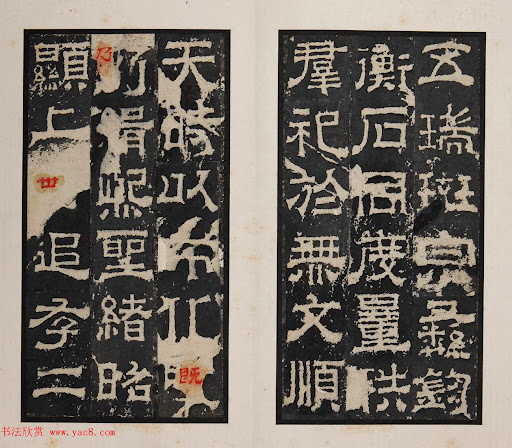 五瑞班宗彝鈞
衡石同度量秩
羣祀於無文順
天時以布化既
乃緝熙聖緒昭
顯上世追存二
书法欣赏 www.yac8.com